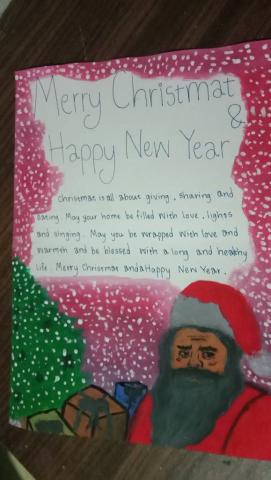 Merry Christmat
&
Happy New Year
Christmat is all about giving, sharing and
eating. May your home be filled with love, lights
and singing. May you be wrapped with love and
warmth and be blessed with a long and healthy
life. Merry Christmat and a Happy New Year.